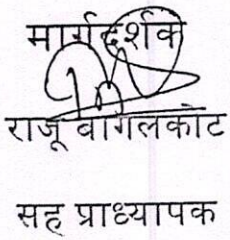 मार्गदर्शक
राजू बागलकोट
सह प्राध्यापक